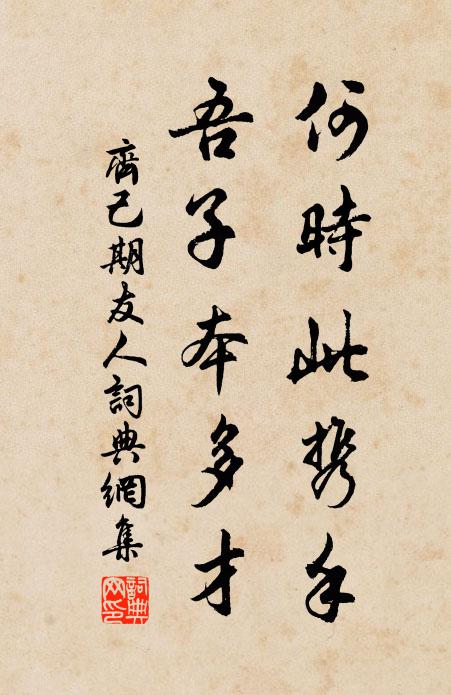 何時此携手
吾子本多才
齊己期友人詞典網集
詞典
网印